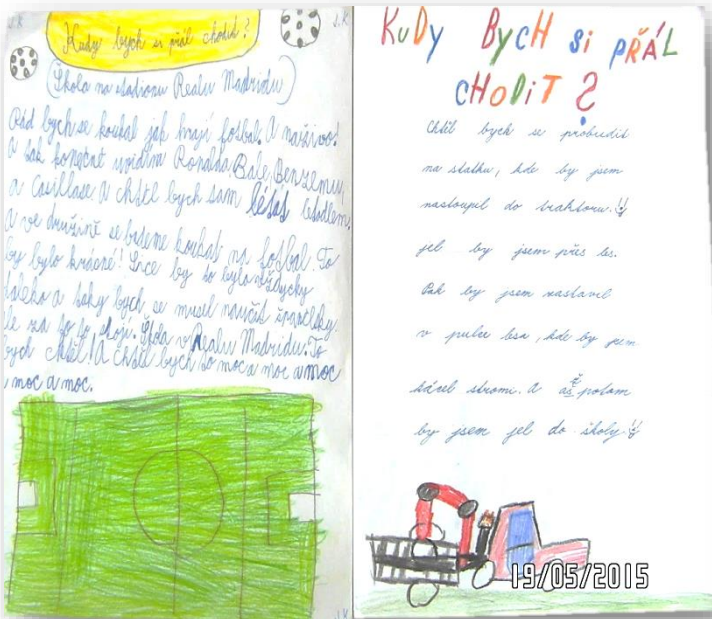 J.K
Kudy bych si přál chodit?
J.K
(Škola na stadionu Realu Madridu)
Rád bych se koukal jak hrají fotbal. A naživo!
A tak konečně uvidím Ronalda, Bale, Benzemu,
a Casillase. A chtěl bych sam létat letadlem.
A ve družině se budeme koukat na fotbal. To
by bylo krásné! Sice by to bylo vždycky
daleko a taky bych se musel naučit španělsky.
le za to to stojí. Škola v Realu Madridu. To
bych chtěl! A chtěl bych to moc a moc a moc
moc a moc.
J.K
KuDy BycH si pŘÁL
cHoDiT?
Chtěl bych se probudit
na statku, kde by jsem
nastoupil do traktoru.
jel by jsem přes les.
Pak by jsem zastavil
v pulce lesa, kde by jsem
kácel stromi. A až potom
by jsem jel do školy
19/05/2015